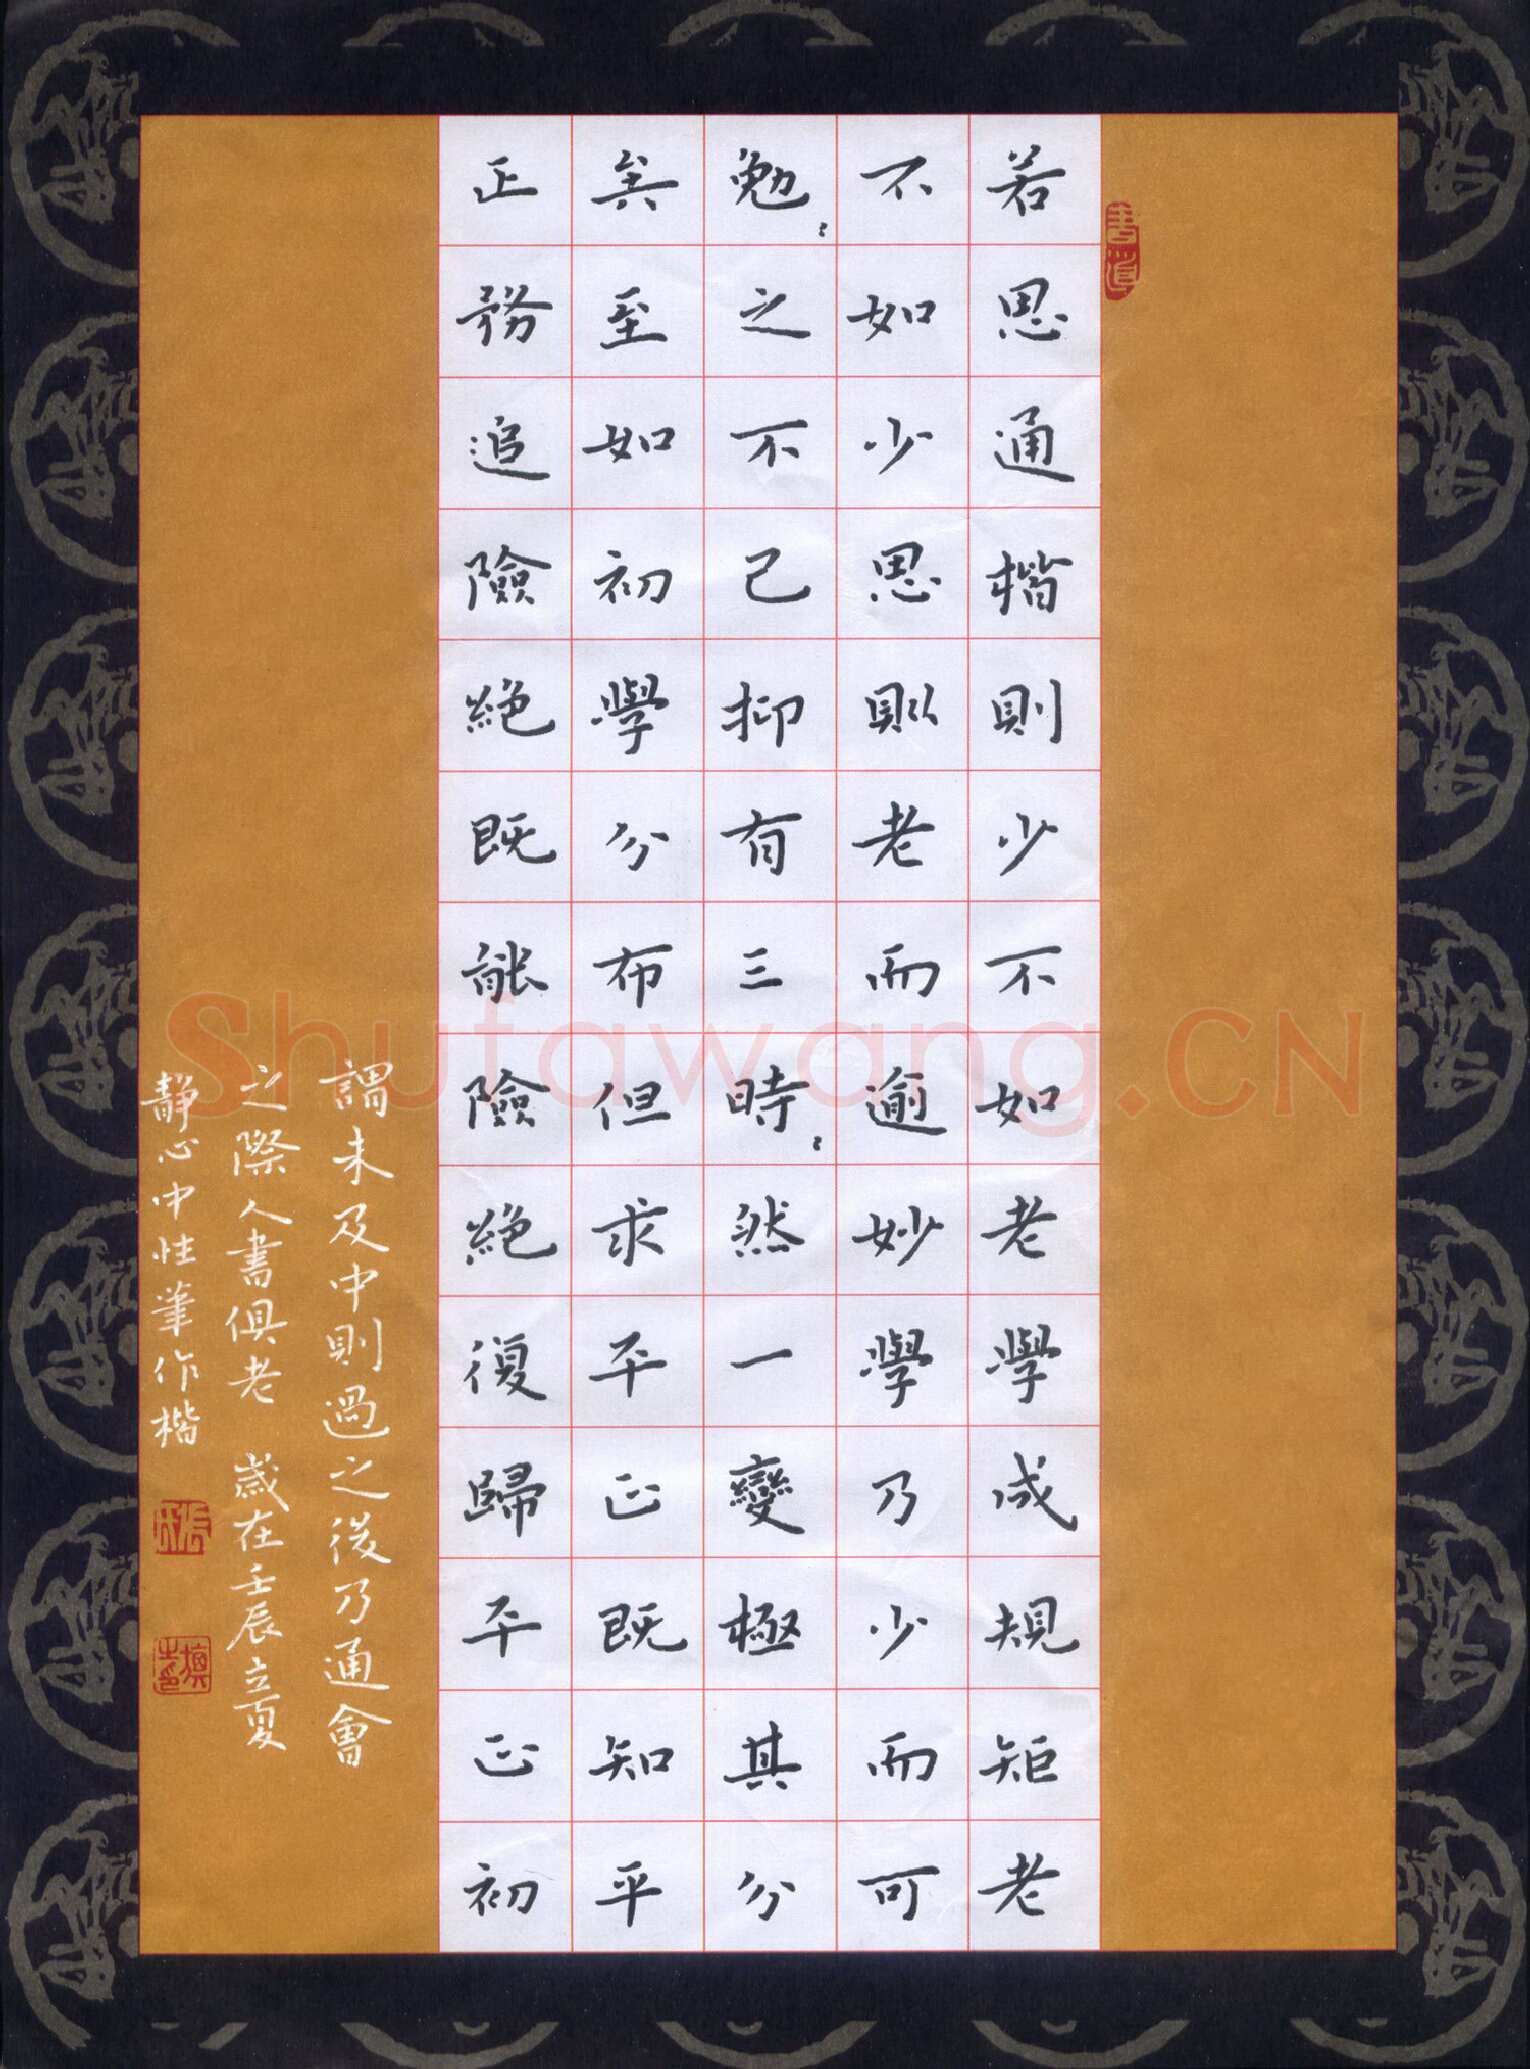 若思通楷則少不如老學成規矩老
不如少思則老而逾妙學乃少而可
勉〻之不已抑有三時〻然一變極其分
矣至如初學分布但求平正既知平
正務追險絕既能險絕復歸平正初
謂未及中則過之後乃通會
之際人書俱老 歲在壬辰立夏
靜心中性筆作楷
Shufawang.CN